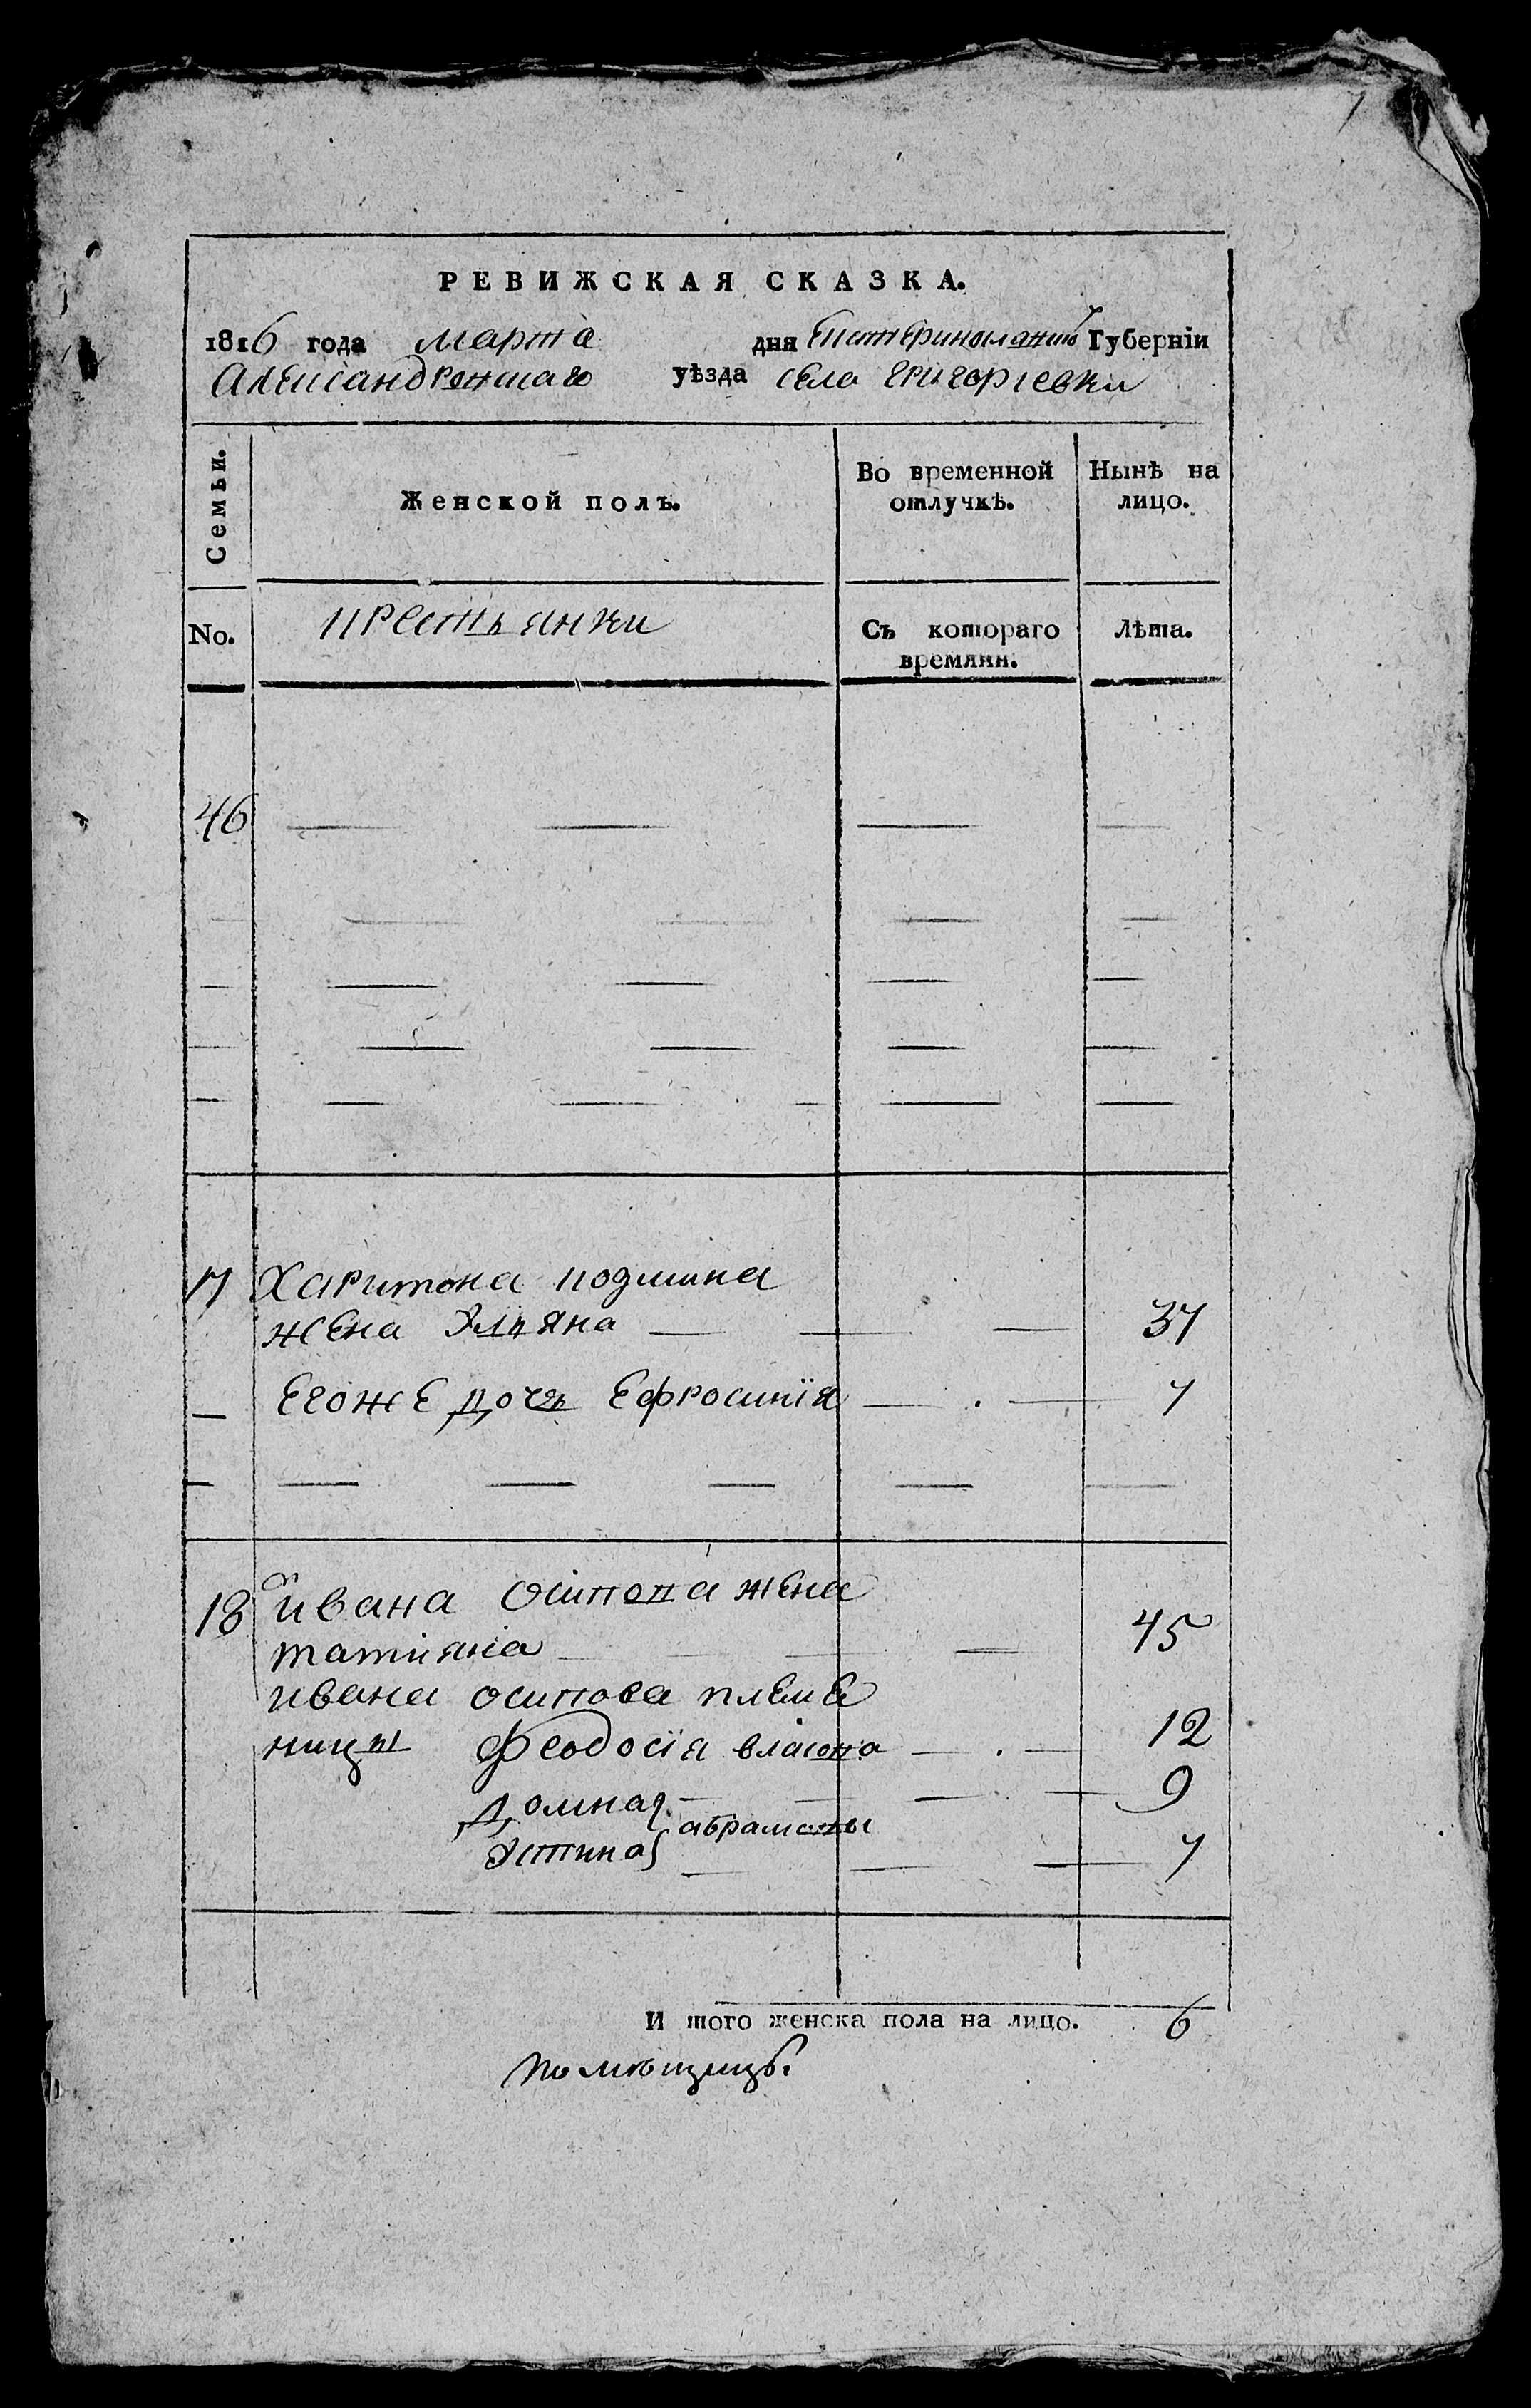 РЕВИЖСКАЯ СКАЗКА.
1816 года марта дня Екатеринославской Губернїи
Александровскаго уѣзда села григорїевки
Семьи.
Женской полъ.
Во временной отлучкѣ.
Нынѣ на лицо.
No.
крестьянки
Съ котораго времянн.
Лѣта.
46
17 Харитона
жена Ульяна 37
Егоже дочь Ефросинїя 7
18 ивана Осипова жена
татияна 45
ивана осипова племе
ницы Феодосїя власова 12
Домна 9
абрамовы
Устина 7
И того женска пола на лицо. 6
помѣщицъ.